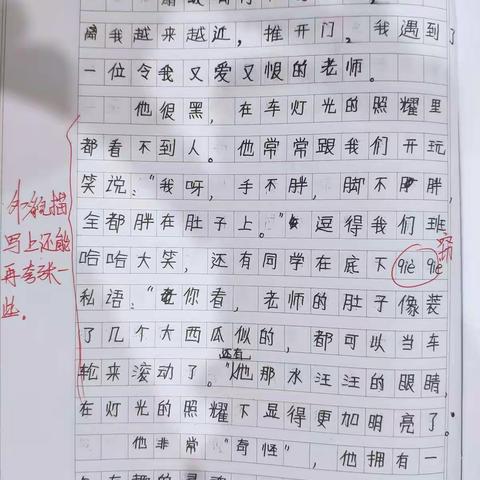 离我越来越近，推开门，我遇到了
一位令我又爱又恨的老师。
他很黑，在车灯光的照耀里
都看不到人。他常常跟我们开玩
笑说："我呀，手不胖，脚不胖，
全都胖在肚子上。"逗得我们班
哈哈大笑，还有同学在底下qiè qiè
窃
私语："你看，老师的肚子像装
了几个大西瓜似的，都可以当车
还有
轮来滚动了。"他那水汪汪的眼睛，
在灯光的照耀下显得更加明亮了。
他非常"奇怪"，他拥有一
外貌描
写上还能
再夸张一
些。